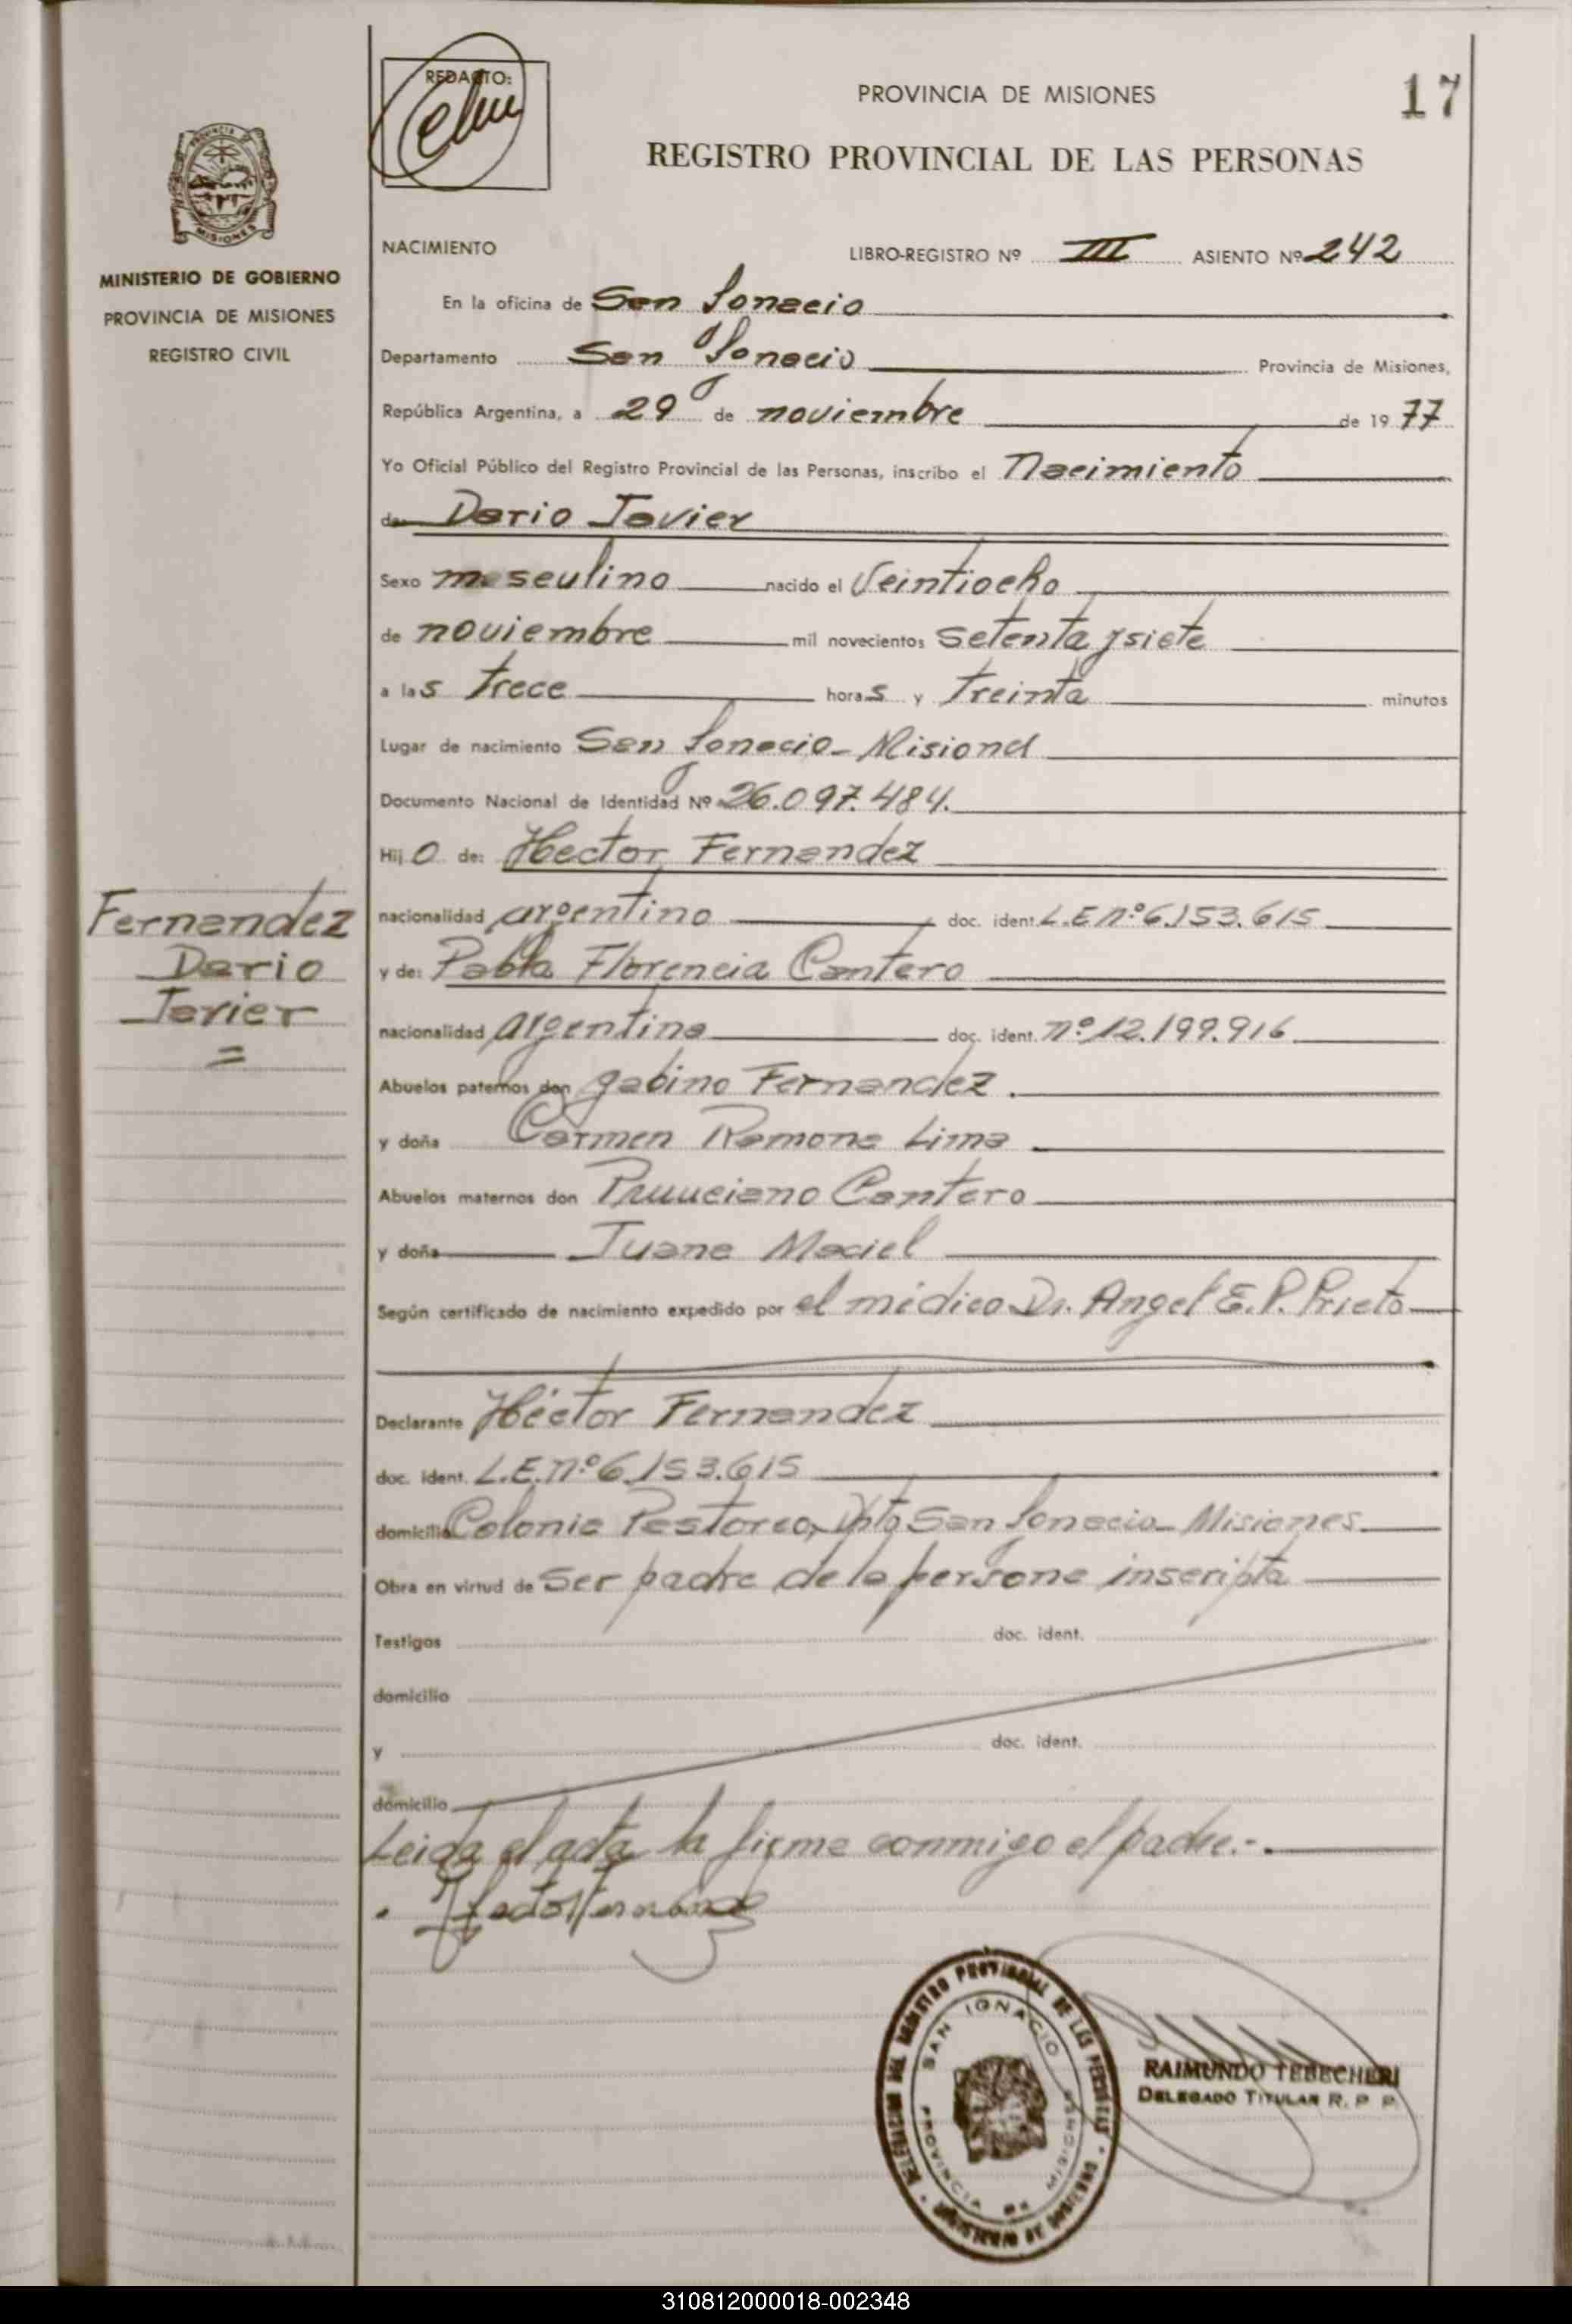 REDACTO:
PROVINCIA DE MISIONES
17
REGISTRO PROVINCIAL DE LAS PERSONAS
MISIONES
MINISTERIO DE GOBIERNO
PROVINCIA DE MISIONES
REGISTRO CIVIL
NACIMIENTO LIBRO-REGISTRO Nº III ASIENTO Nº 242
En la oficina de San Ignacio
Departamento San Ignacio Provincia de Misiones,
República Argentina, a 29 de noviembre de 1977
Yo Oficial Público del Registro Provincial de las Personas, inscribo el Nacimiento
de Dario Javier
Sexo masculino nacido el Veintiocho
de noviembre mil novecientos setenta y siete
a las trece horas y treinta minutos
Lugar de nacimiento San Ignacio - Misiones
Documento Nacional de Identidad Nº 26.097.484.
Hijo de: Hector Fernandez
Fernandez
Dario
Javier
=
nacionalidad argentino doc. ident. L.E.nº6.153.615
y de: Pabla Florencia Cantero
nacionalidad argentina doc. ident. nº 12.199.916
Abuelos paternos don gabino Fernandez.
y doña Carmen Ramona Lima
Abuelos maternos don Cantero
y doña Juana Maciel
Según certificado de nacimiento expedido por el médico Dr. Angel E.P. Prieto
Declarante Héctor Fernandez
doc. ident. L.E.nº6.153.615
domicilio Colonia Pastoreo, Dpto San Ignacio - Misiones.
Obra en virtud de ser padre de la persona inscripta
Testigos doc. ident.
domicilio
y doc. ident.
domicilio
Leida el acta la firma conmigo el padre.-
Hector Fernandez
DEL REGISTRO PROVINCIAL DE LAS PERSONAS
MINISTERIO DE GOBIERNO
SAN IGNACIO
PROVINCIA DE MISIONES
RAIMUNDO TEBECHERI
DELEGADO TITULAR R. P. P.
310812000018-002348